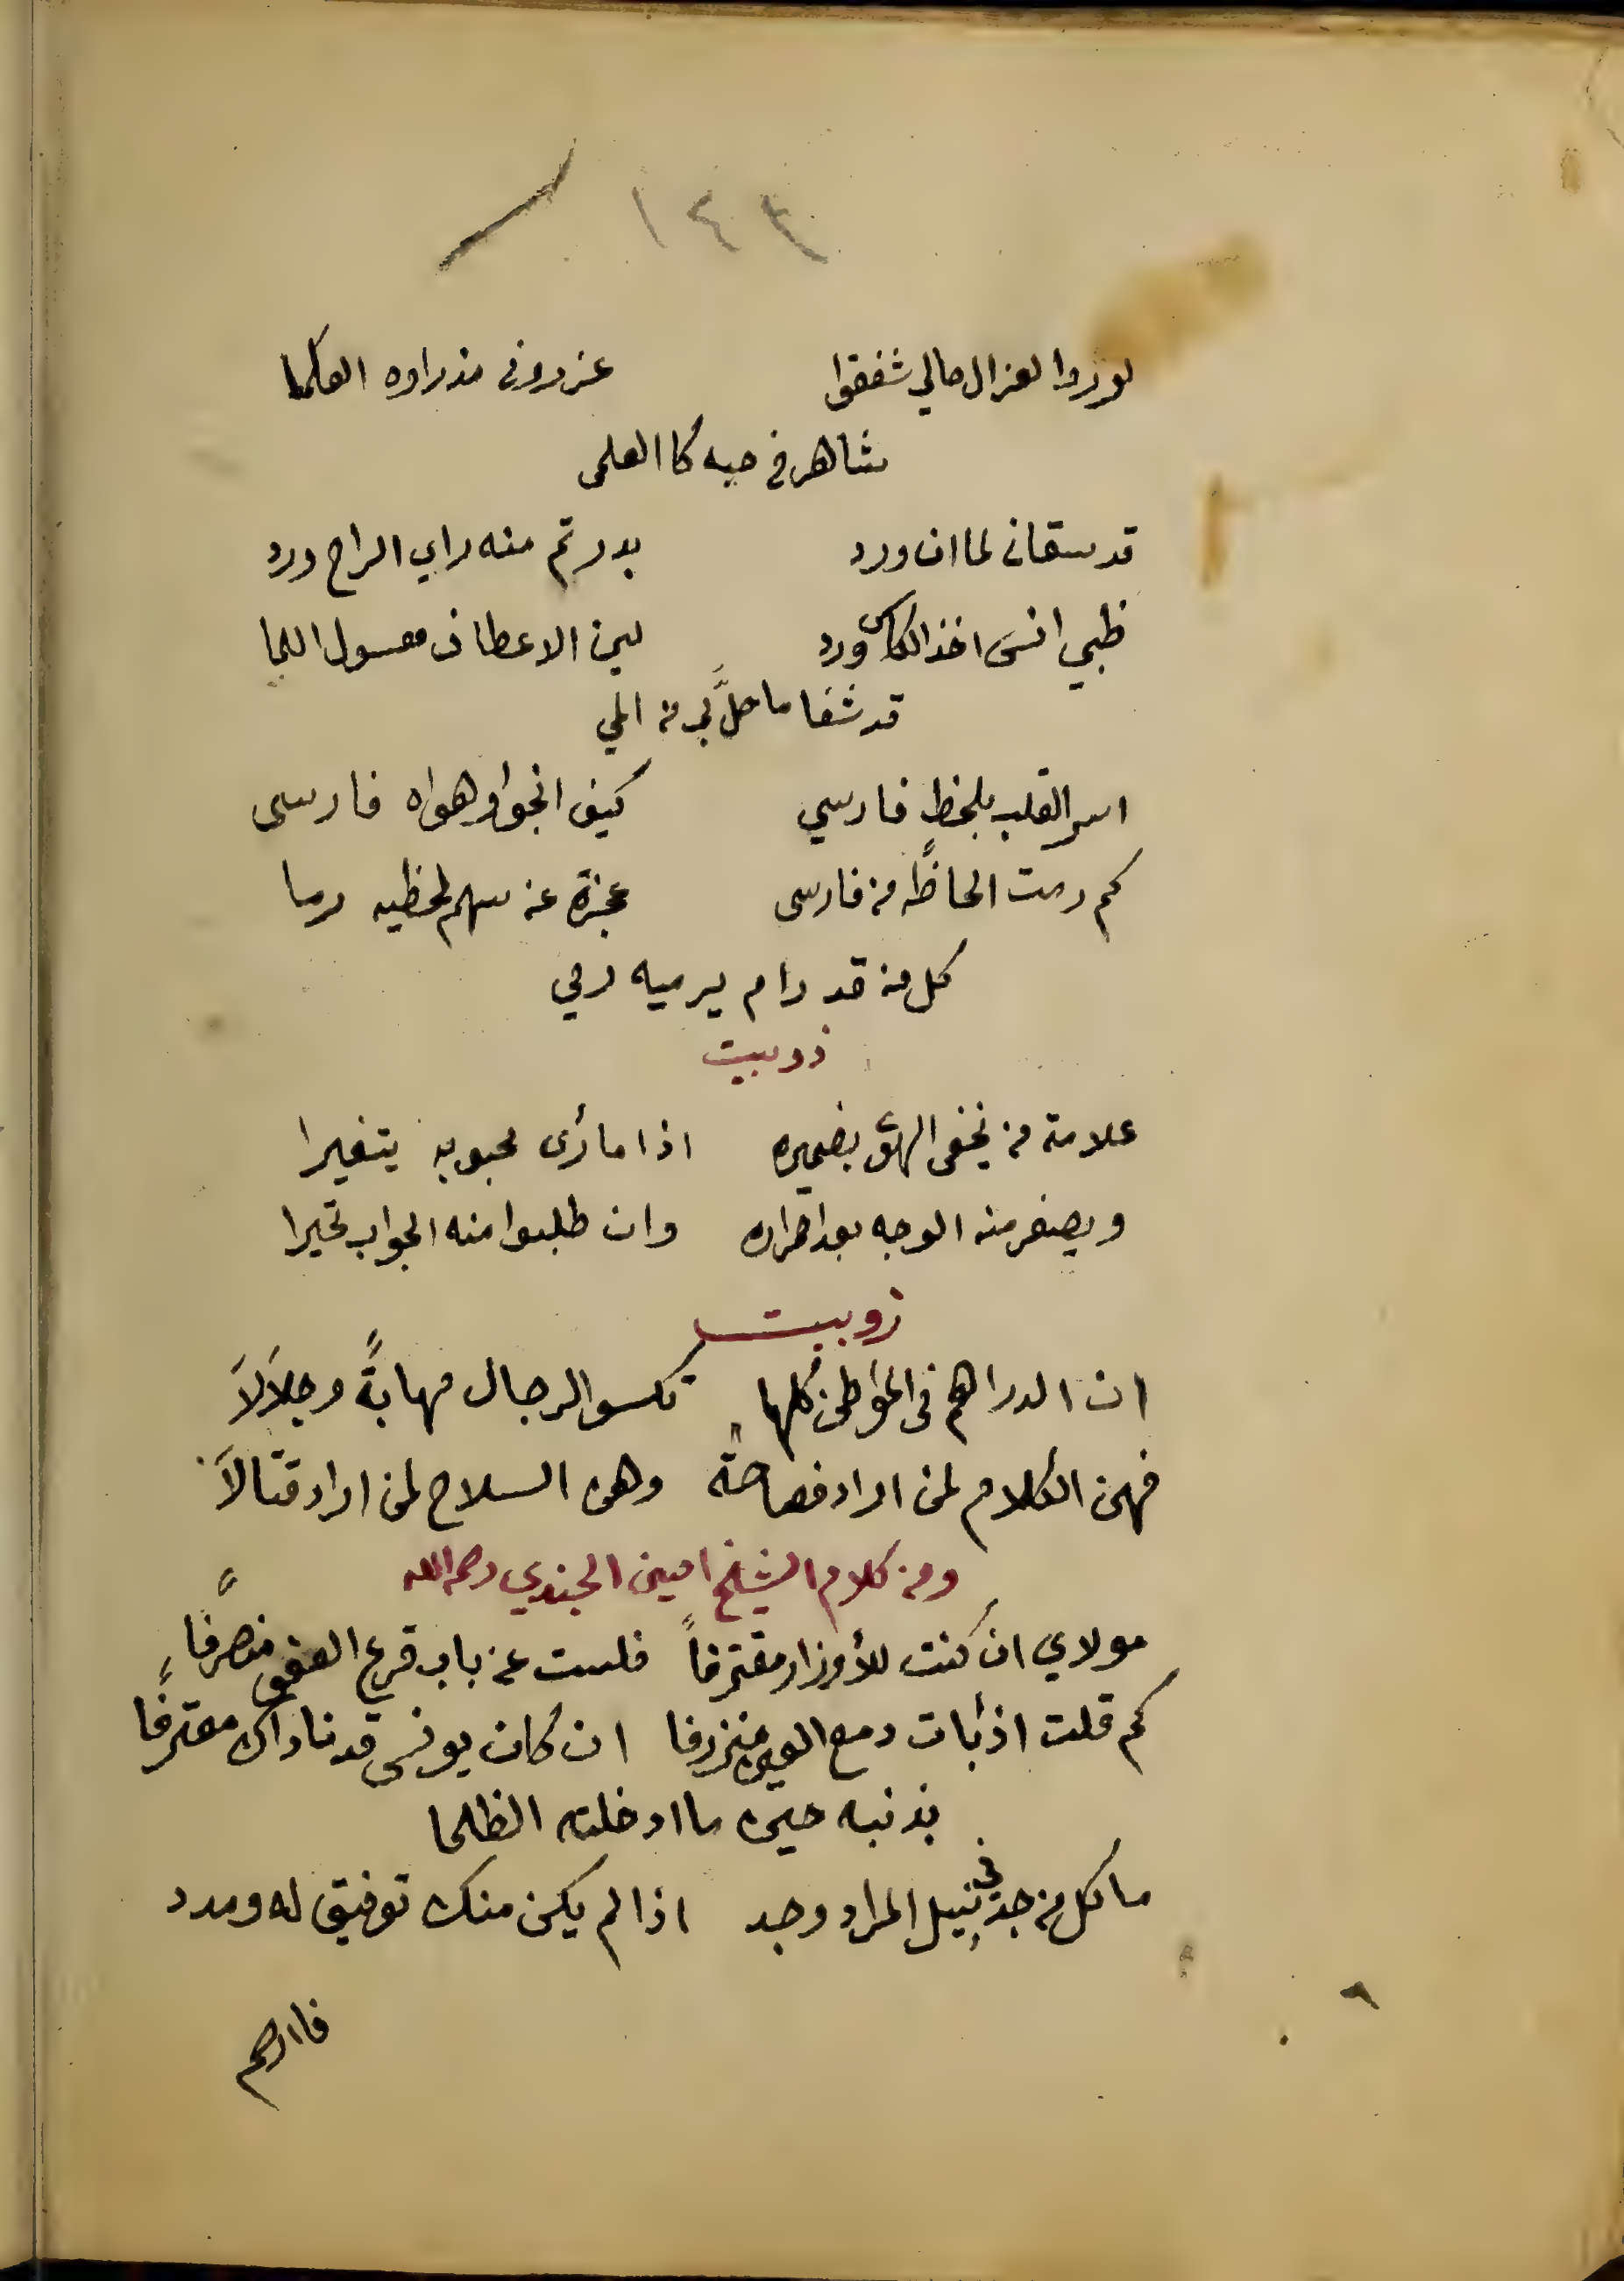 ١٤٣
لو زدوا العزال حالي شفقوا عزروني مذ راوه العلما
شاهر في حبه كا العلمي
قد سقاني لما ان ورد بدر تم منه راي الراح ورد
ظبي انس اخذ الكاس وورد لين الاعطاف معسول اللما
قد شفا ما حلَّ بي من المي
اسر القلب بلحظٍ فارسي كيف انجوا وهواه فارسي
كم رمت الحاظًه من فارسي عجزة عن سهم لحظيه رما
كل من قد رام يرميه رمي
ذوبيت
علامة من يخفي الهوى بضميره اذا ما رأى محبوبه يتغيرا
ويصفر منه الوجه بعد احمراره وان طلبوا منه الجواب تحيرا
زوبيت
ان الدراهم في المواطن كلها تكسو الرجال مهابةً وجلاَلاَ
فهن الكلام لمن اراد فصاحة وهي السلاح لمن اراد قتالاَ
ومن كلام الشيخ امين الجندي رحمه الله
مولاي ان كنت للأوزار مقترفاً فلست عن باب قرع العفو منصرفًا
كم قلت اذ بات دمع العين منزرفا ان كان يونس قد ناداك معترفًا
بذنبه حين ما ادخلته الظلما
ما كل من جد في نيل المراد وجد اذا لم يكن منك توفيق له ومدد
فاارحم